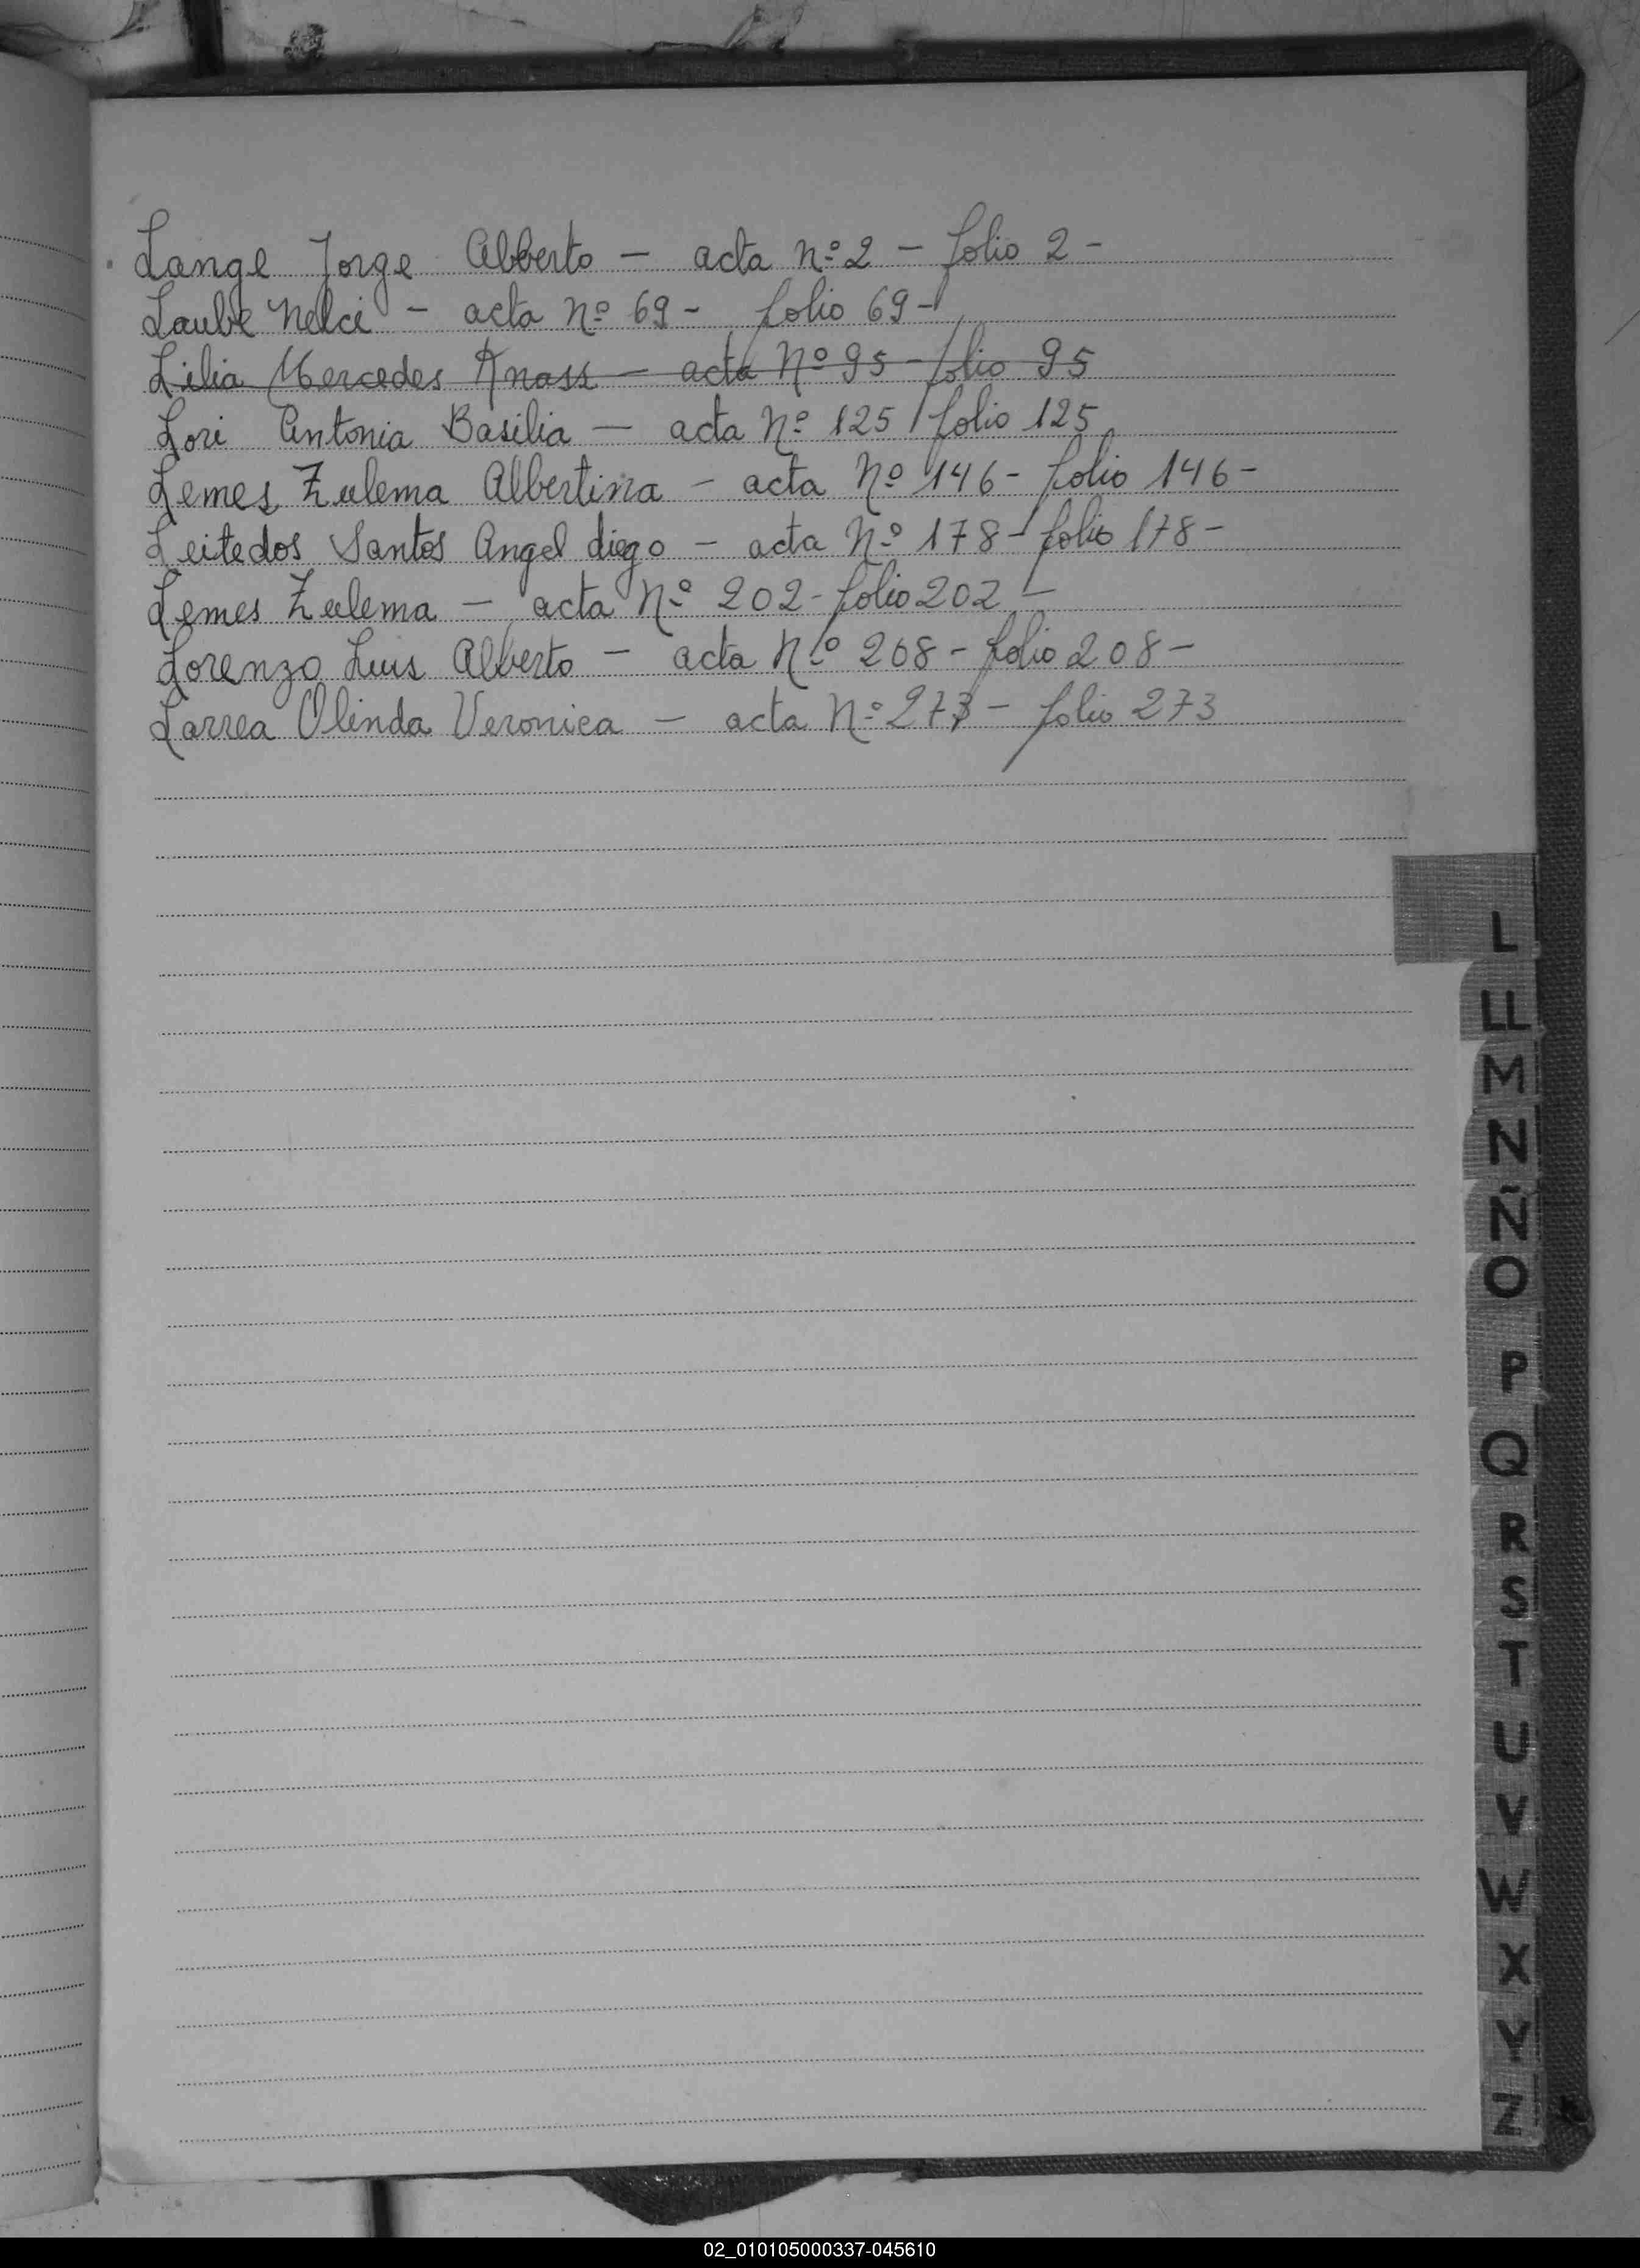 Lange Jorge Alberto — acta nº 2 — folio 2 -
Laube Nelci - acta nº 69 - folio 69 -
Lilia Mercedes Knass — acta Nº 95 - folio 95
Lori Antonia Basilia — acta Nº 125 / folio 125
Lemes Zulema Albertina - acta Nº 146 - folio 146 -
Leitedos Santos Angel diego - acta Nº 178 - folio 178 -
Lemes Zulema — acta Nº 202 - folio 202 -
Lorenzo Luis Alberto - acta Nº 208 - folio 208 -
Larrea Olinda Veronica - acta Nº 273 - folio 273
L
LL
M
N
Ñ
O
P
Q
R
S
T
U
V
W
X
Y
Z
02_010105000337-045610